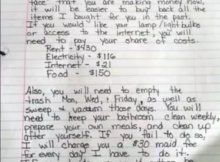 face that you are making money,
it will be easier to buy back all the
items I bought for you in the past.
If you would like your lamp/lightbulbs
or access to the internet, you will
need to pay your share of costs.
Rent - $430
Electricity - $116
Internet - $21
Food - $150
Also, you will need to empty the
trash Mon, Wed, & Friday, as well as
sweep & vacuum those days. You will
need to keep your bathroom clean weekly,
prepare your own meals, and clean up
after yourself. If you fail to do so,
I will charge you a $30 maid fee
for every day I have to do it.